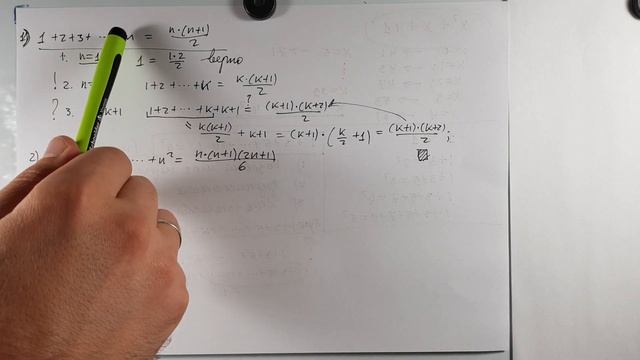 1) 1+2+3+ ... n = n·(n+1)/2
1. n=1 1 = 1·2/2 верно
! 2. n= 1+2+...+k = k·(k+1)/2
? 3. k+1 1+2+...+k+k+1 =? (k+1)·(k+2)/2
= k(k+1)/2 + k+1 = (k+1)·(k/2 +1) = (k+1)·(k+2)/2 ;
2) ... + n² = n·(n+1)(2n+1)/6